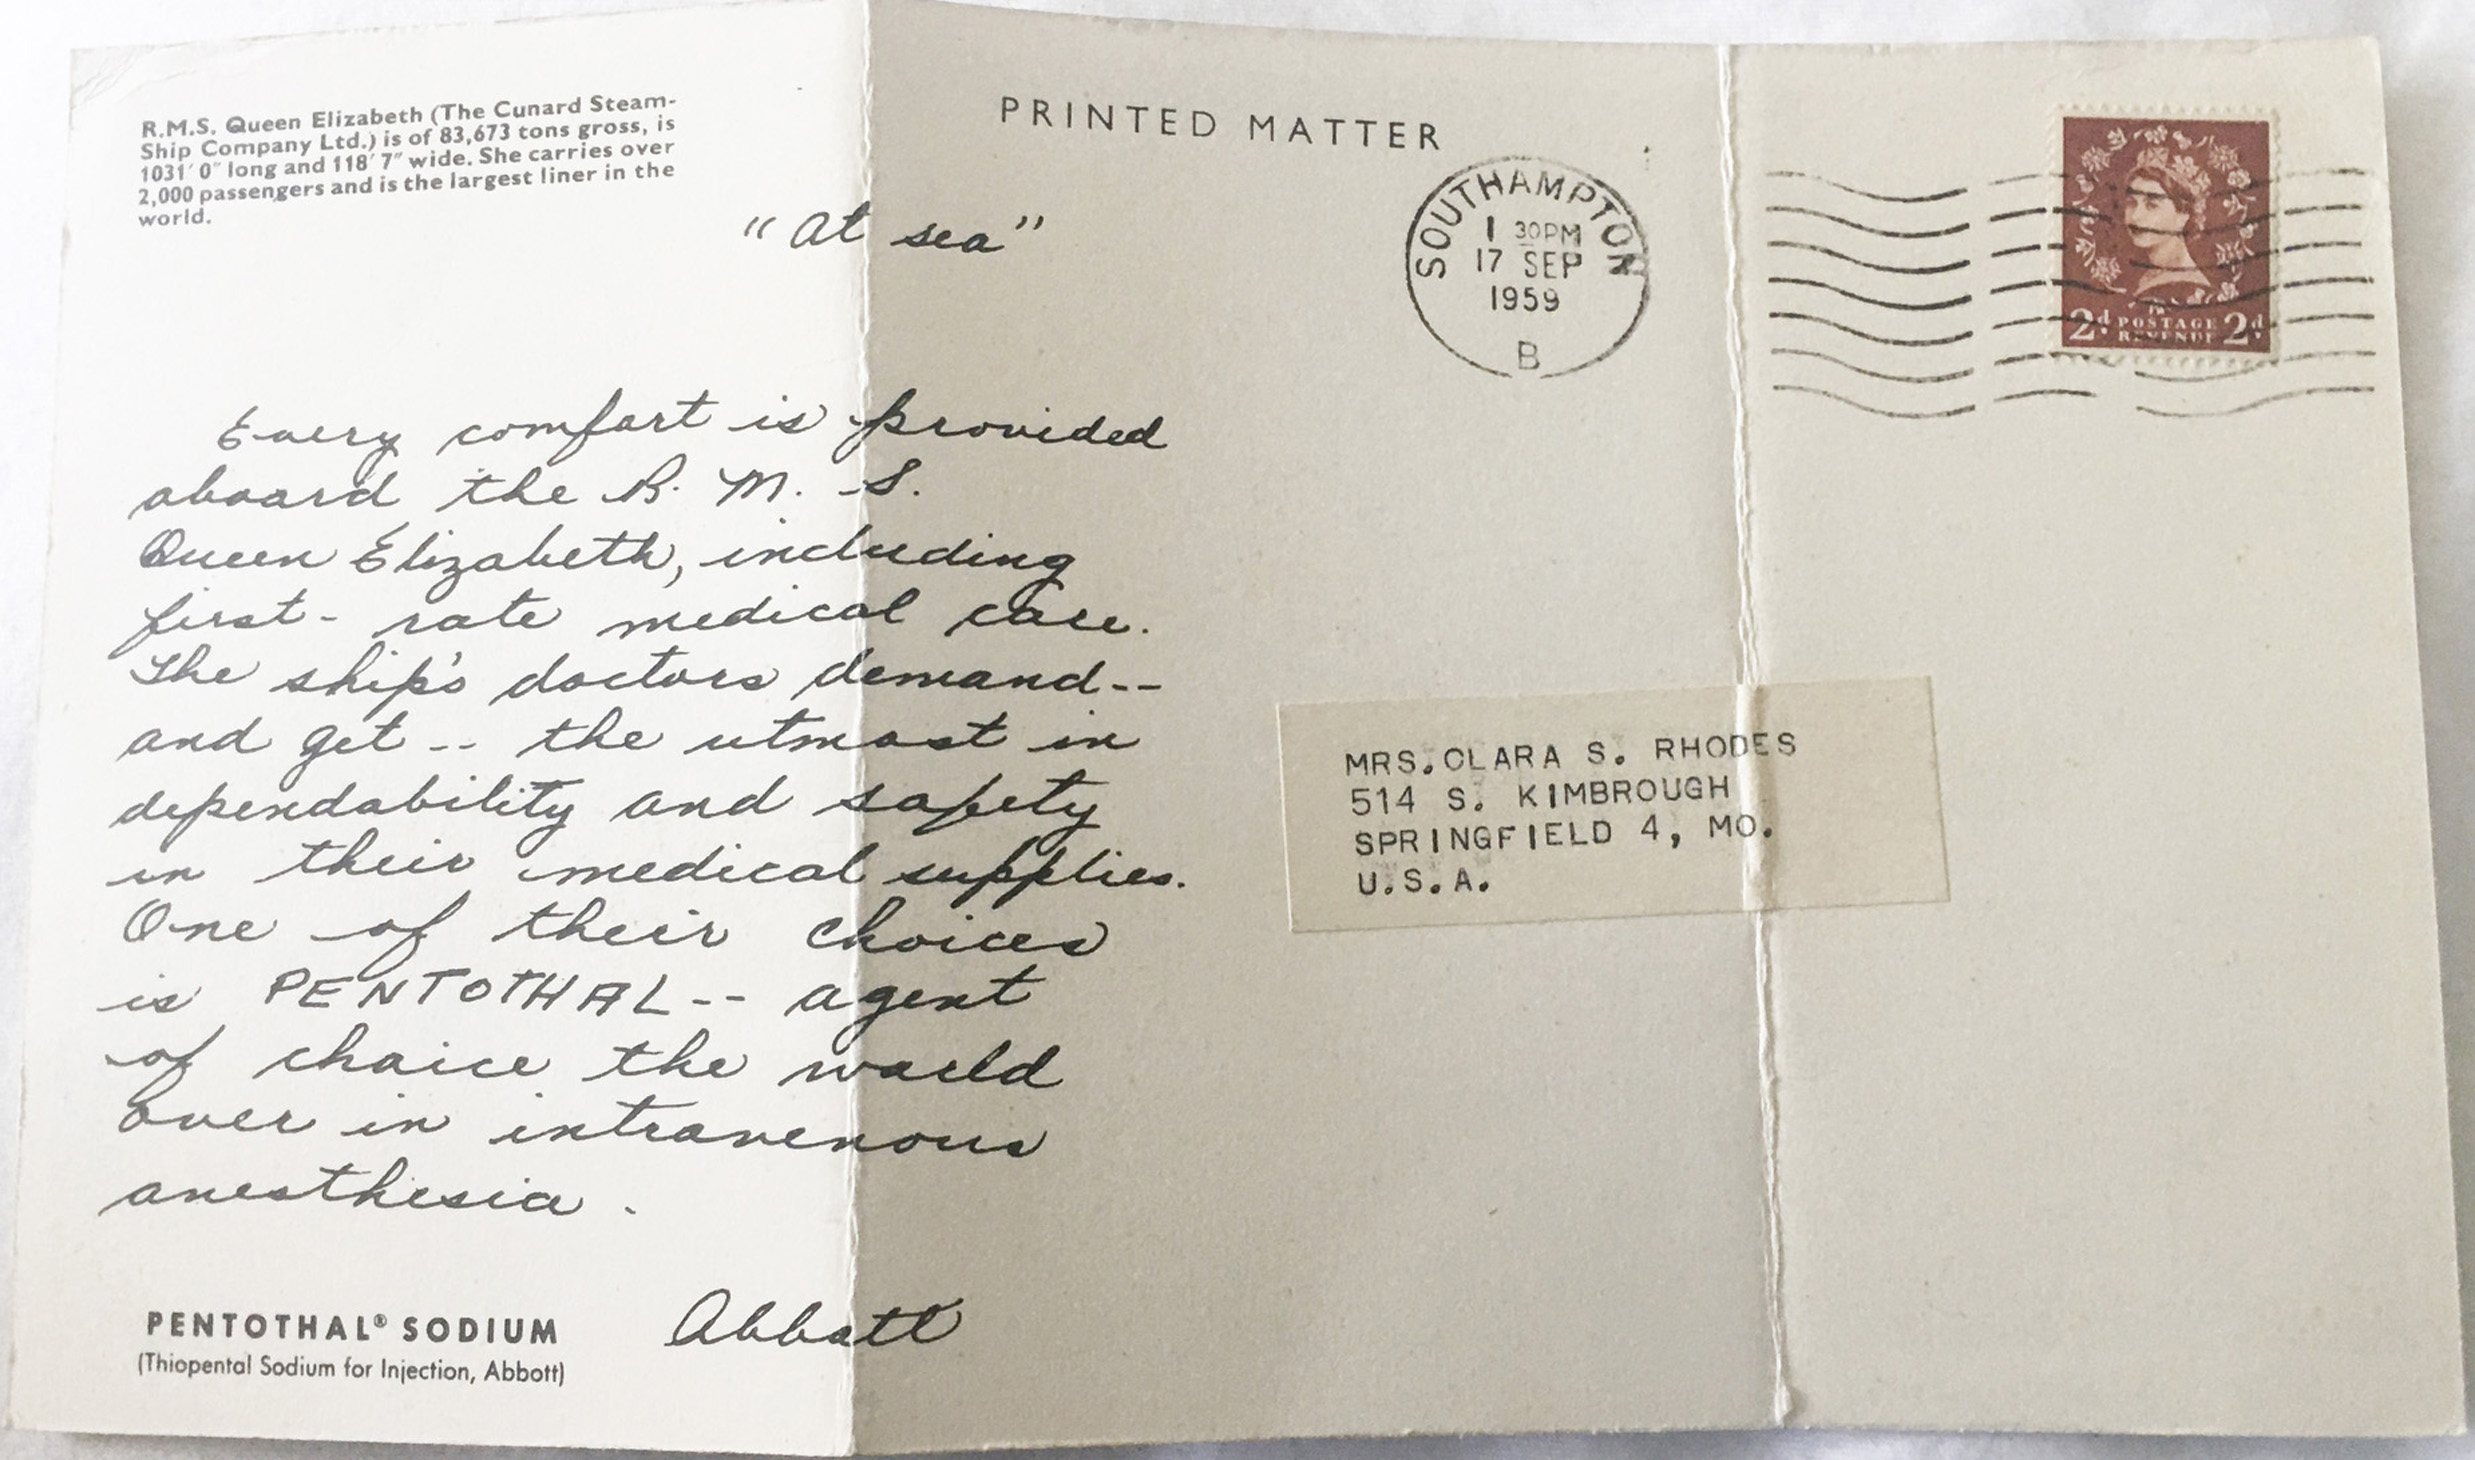 R.M.S. Queen Elizabeth (The Cunard Steam-
Ship Company Ltd.) is of 83,673 tons gross, is
1031' 0" long and 118' 7" wide. She carries over
2,000 passengers and is the largest liner in the
world.
PRINTED MATTER
SOUTHAMPTON
1 30PM
17 SEP
1959
B
2d POSTAGE 2d
REVENUE
"at sea"
Every comfort is provided
aboard the R. M. S.
Queen Elizabeth, including
first-rate medical care.
The ship's doctors demand--
and get -- the utmost in
dependability and safety
in their medical supplies.
One of their choices
is PENTOTHAL -- agent
of choice the world
over in intravenous
anesthesia.
Abbott
PENTOTHAL® SODIUM
(Thiopental Sodium for Injection, Abbott)
MRS.CLARA S. RHODES
514 S. KIMBROUGH
SPRINGFIELD 4, MO.
U.S.A.